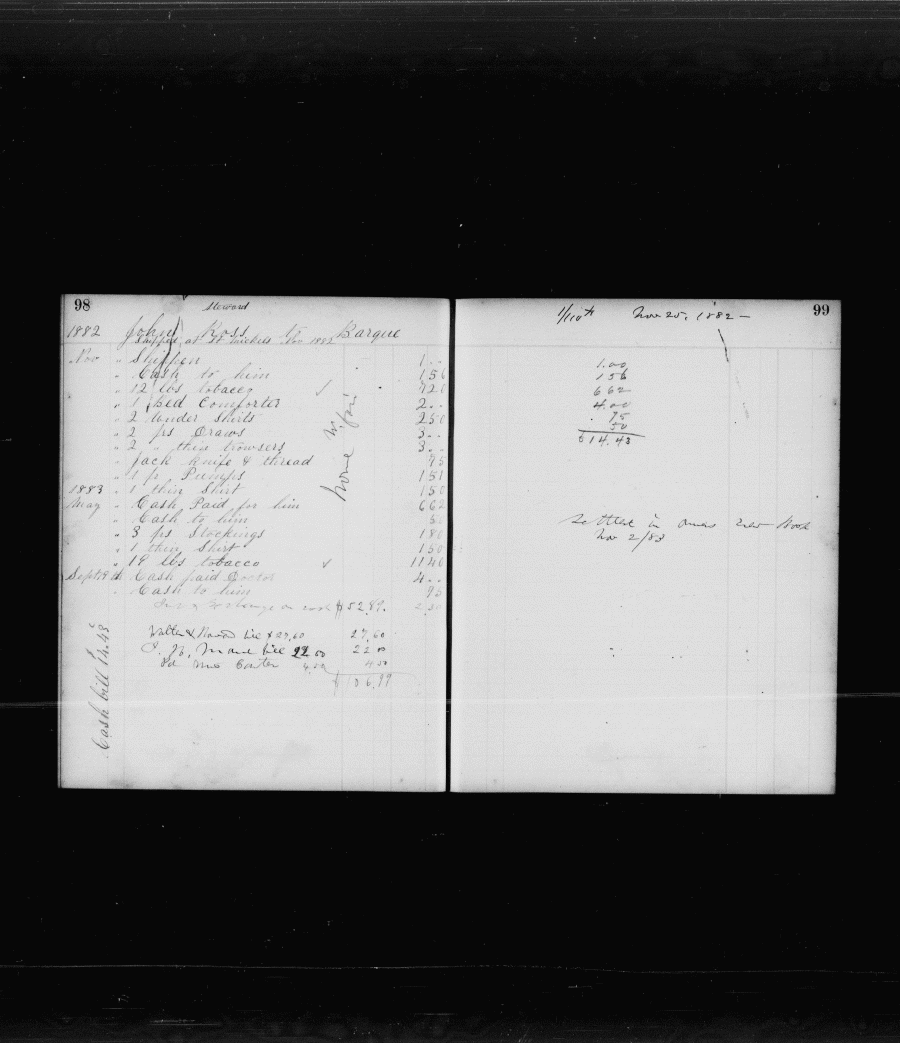 98
Steward
1882 John Ross to Barque
Shipped at St Nov 1882
Nov " Shippen 1 --
" Cash to him 156
" 12 lbs tobacco 720
" 1 bed Comforter 2 --
" 2 Under Shirts 250
" 2 prs Draws 3 --
" 2 " thin trowsers 3 --
" Jack Knife & thread 75
" 1 pr Pumps 151
1883 " 1 thin Shirt 150
May " Cash Paid for him 662
" Cash to him 50
" 3 prs Stockings 180
" 1 thin Shirt 150
" 19 lbs tobacco 1140
Sept 19th Cash paid Doctor 4 --
" Cash to him 95
on cash $52.89. 2.50
bill $27.60 27.60
bill 22 00 22 00
Pd Mrs 4.50 4 50
$106.99
home
Cash bill $14.43
99
1/110th Nov 25, 1882 -
1.00
156
662
4.00
.95
50
$14.43
Settled in new Book
Nov 2/83